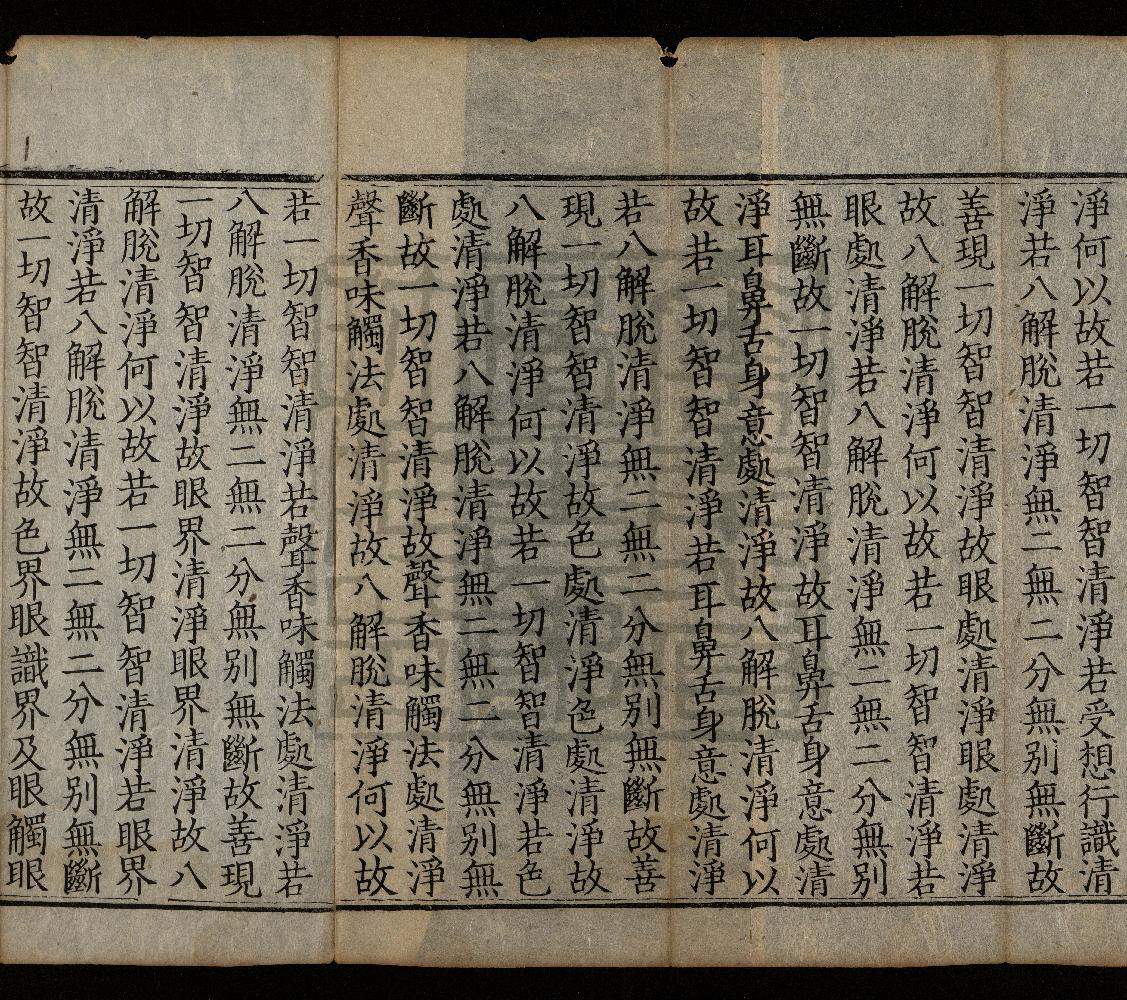 淨何以故若一切智智清淨若受想行識清
淨若八解脫清淨無二無二分無別無斷故
善現一切智智清淨故眼處清淨眼處清淨
故八解脫清淨何以故若一切智智清淨若
眼處清淨若八解脫清淨無二無二分無別
無斷故一切智智清淨故耳鼻舌身意處清
淨耳鼻舌身意處清淨故八解脫清淨何以
故若一切智智清淨若耳鼻舌身意處清淨
若八解脫清淨無二無二分無別無斷故善
現一切智智清淨故色處清淨色處清淨故
八解脫清淨何以故若一切智智清淨若色
處清淨若八解脫清淨無二無二分無別無
斷故一切智智清淨故聲香味觸法處清淨
聲香味觸法處清淨故八解脫清淨何以故
若一切智智清淨若聲香味觸法處清淨若
八解脫清淨無二無二分無別無斷故善現
一切智智清淨故眼界清淨眼界清淨故八
解脫清淨何以故若一切智智清淨若眼界
清淨若八解脫清淨無二無二分無別無斷
故一切智智清淨故色界眼識界及眼觸眼